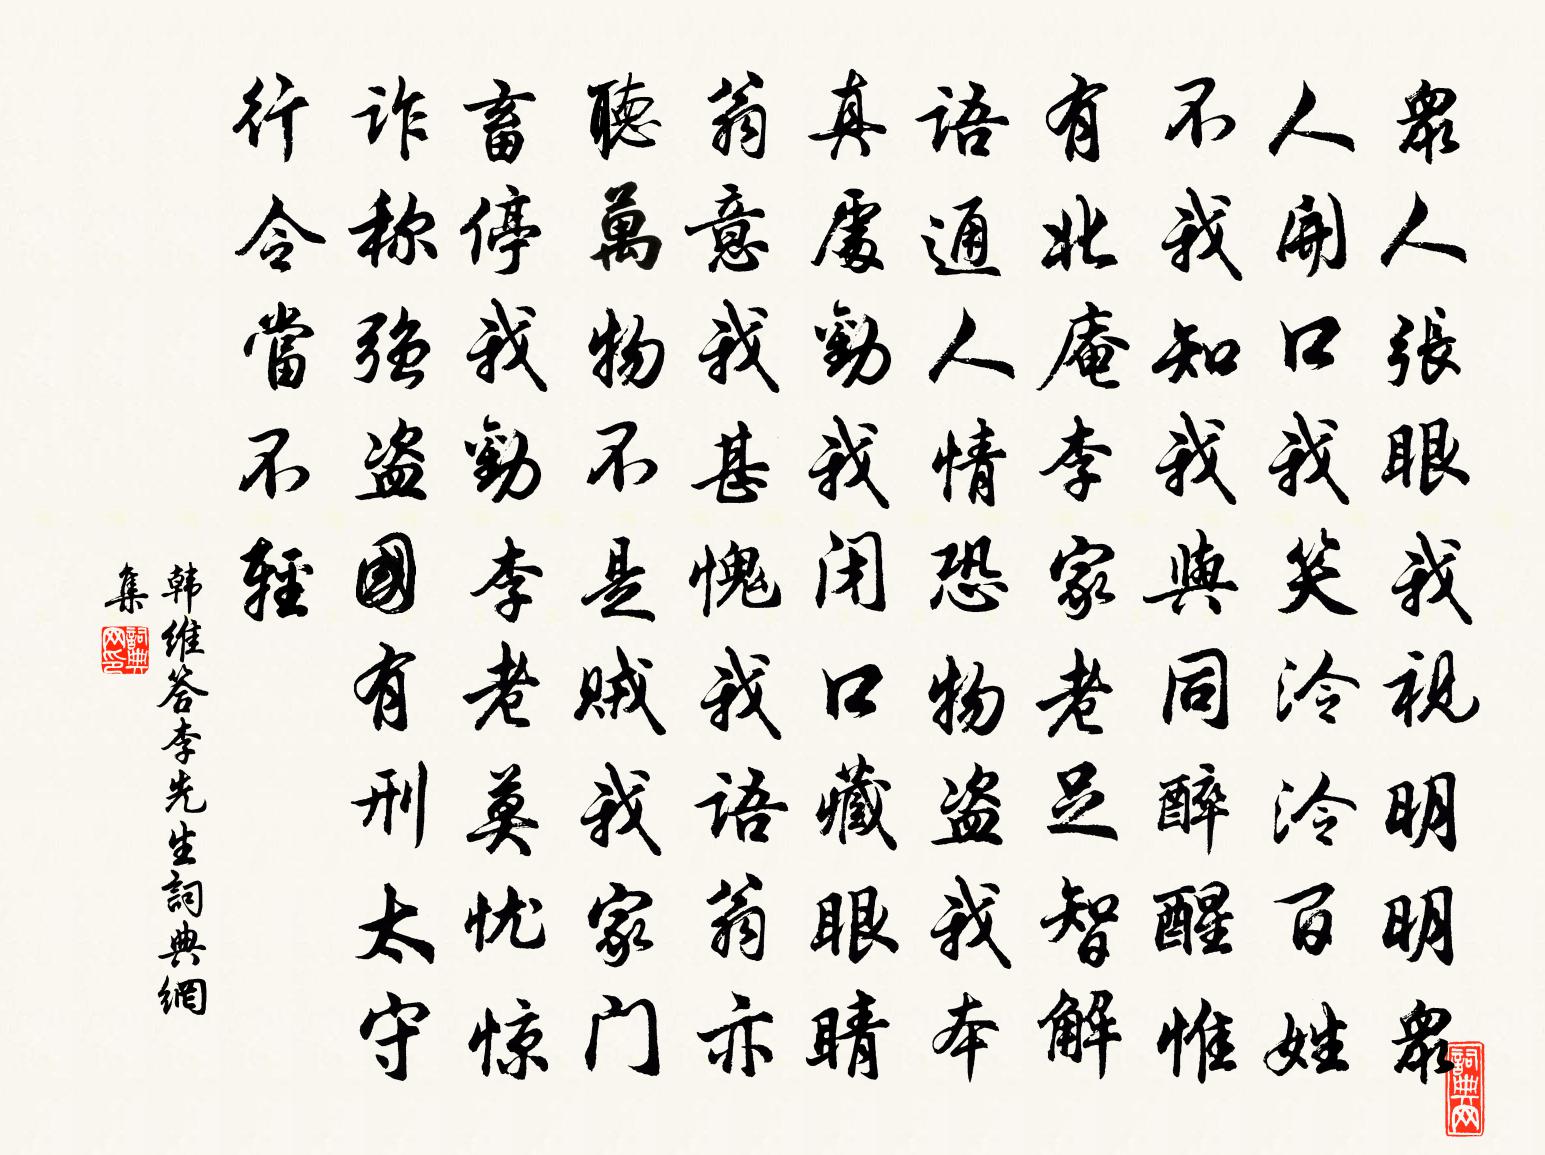 眾人張眼我視明明眾
人開口我笑泠泠百姓
不我知我與同醉醒惟
有北庵李家老足智解
語通人情恐物盗我本
真處勸我闭口藏眼睛
翁意我甚愧我語翁亦
聽萬物不是贼我家门
畜停我勸李老莫忧惊
诈称强盗國有刑太守
行令當不輕
韩维答李先生詞典網
集
詞典网印
詞典网